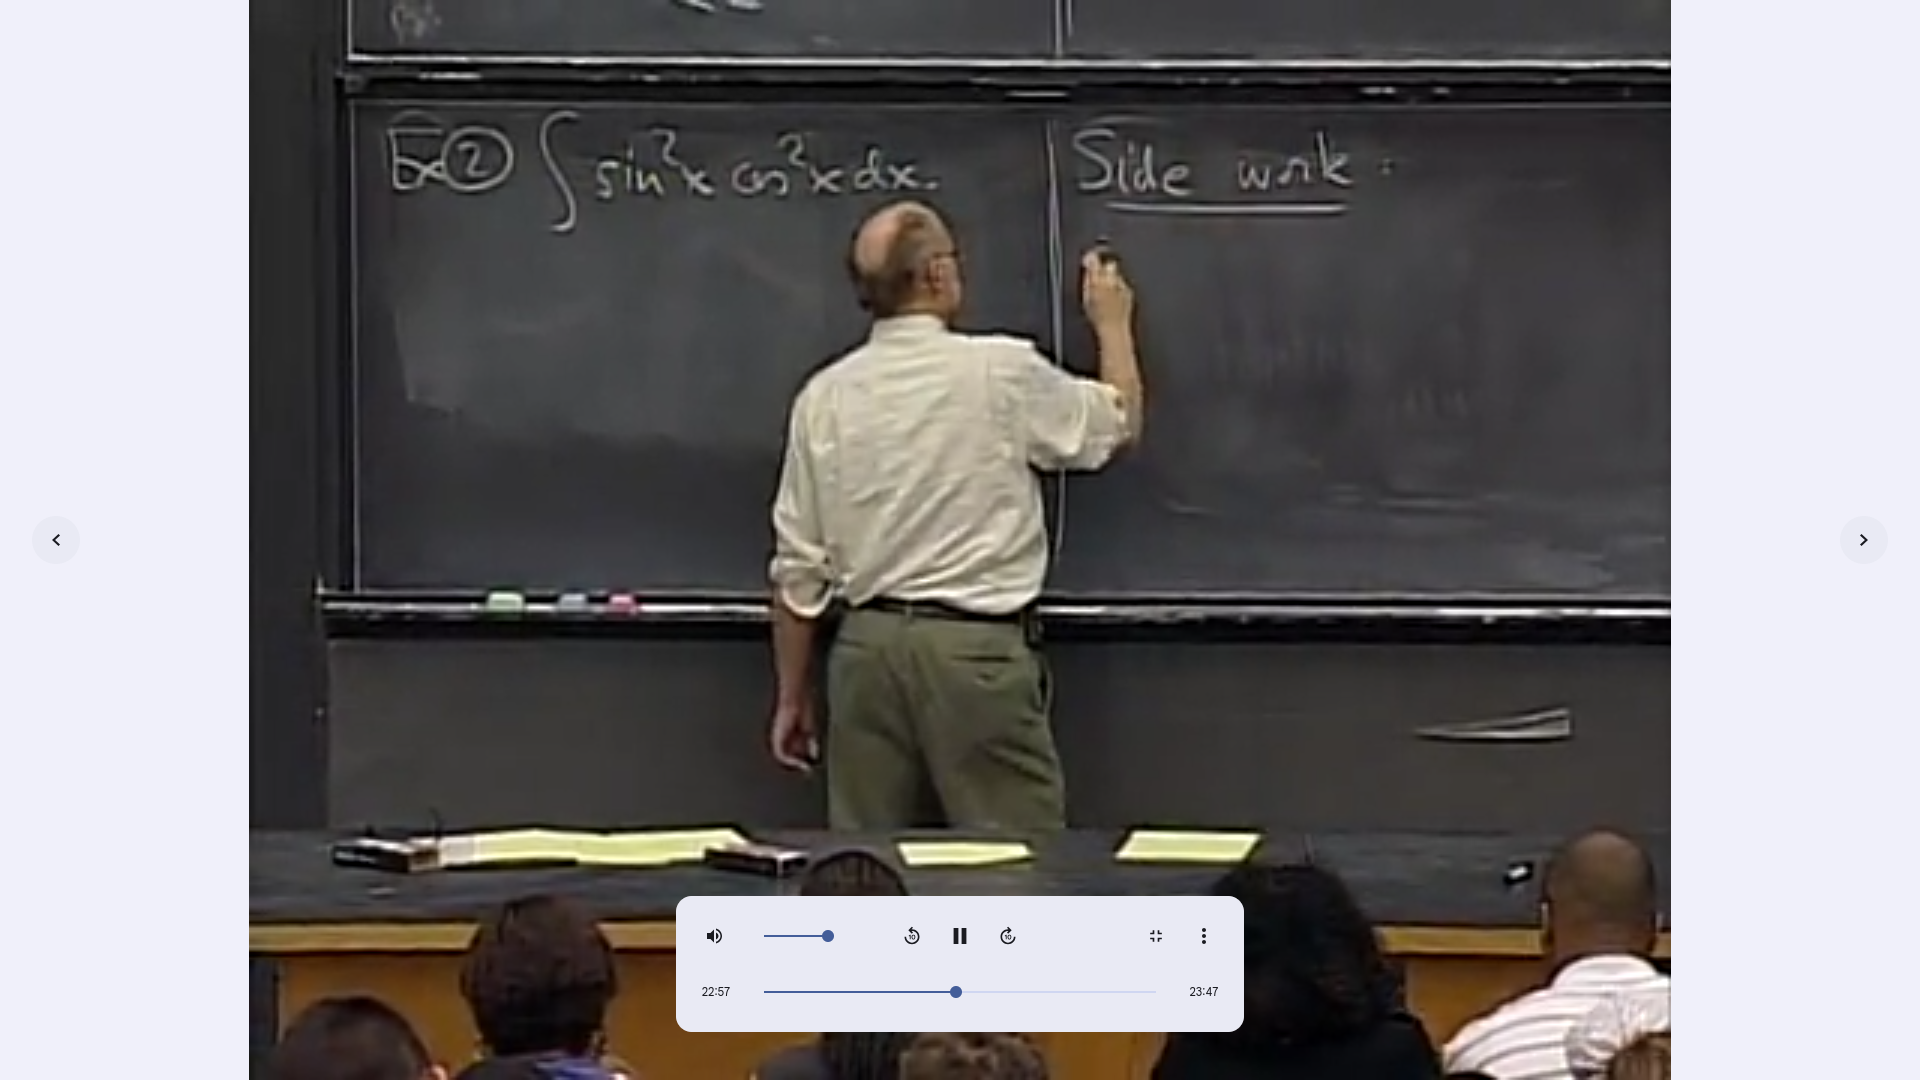 Ex ② ∫ sin²x cos²x dx.
Side work:
10
10
22:57
23:47